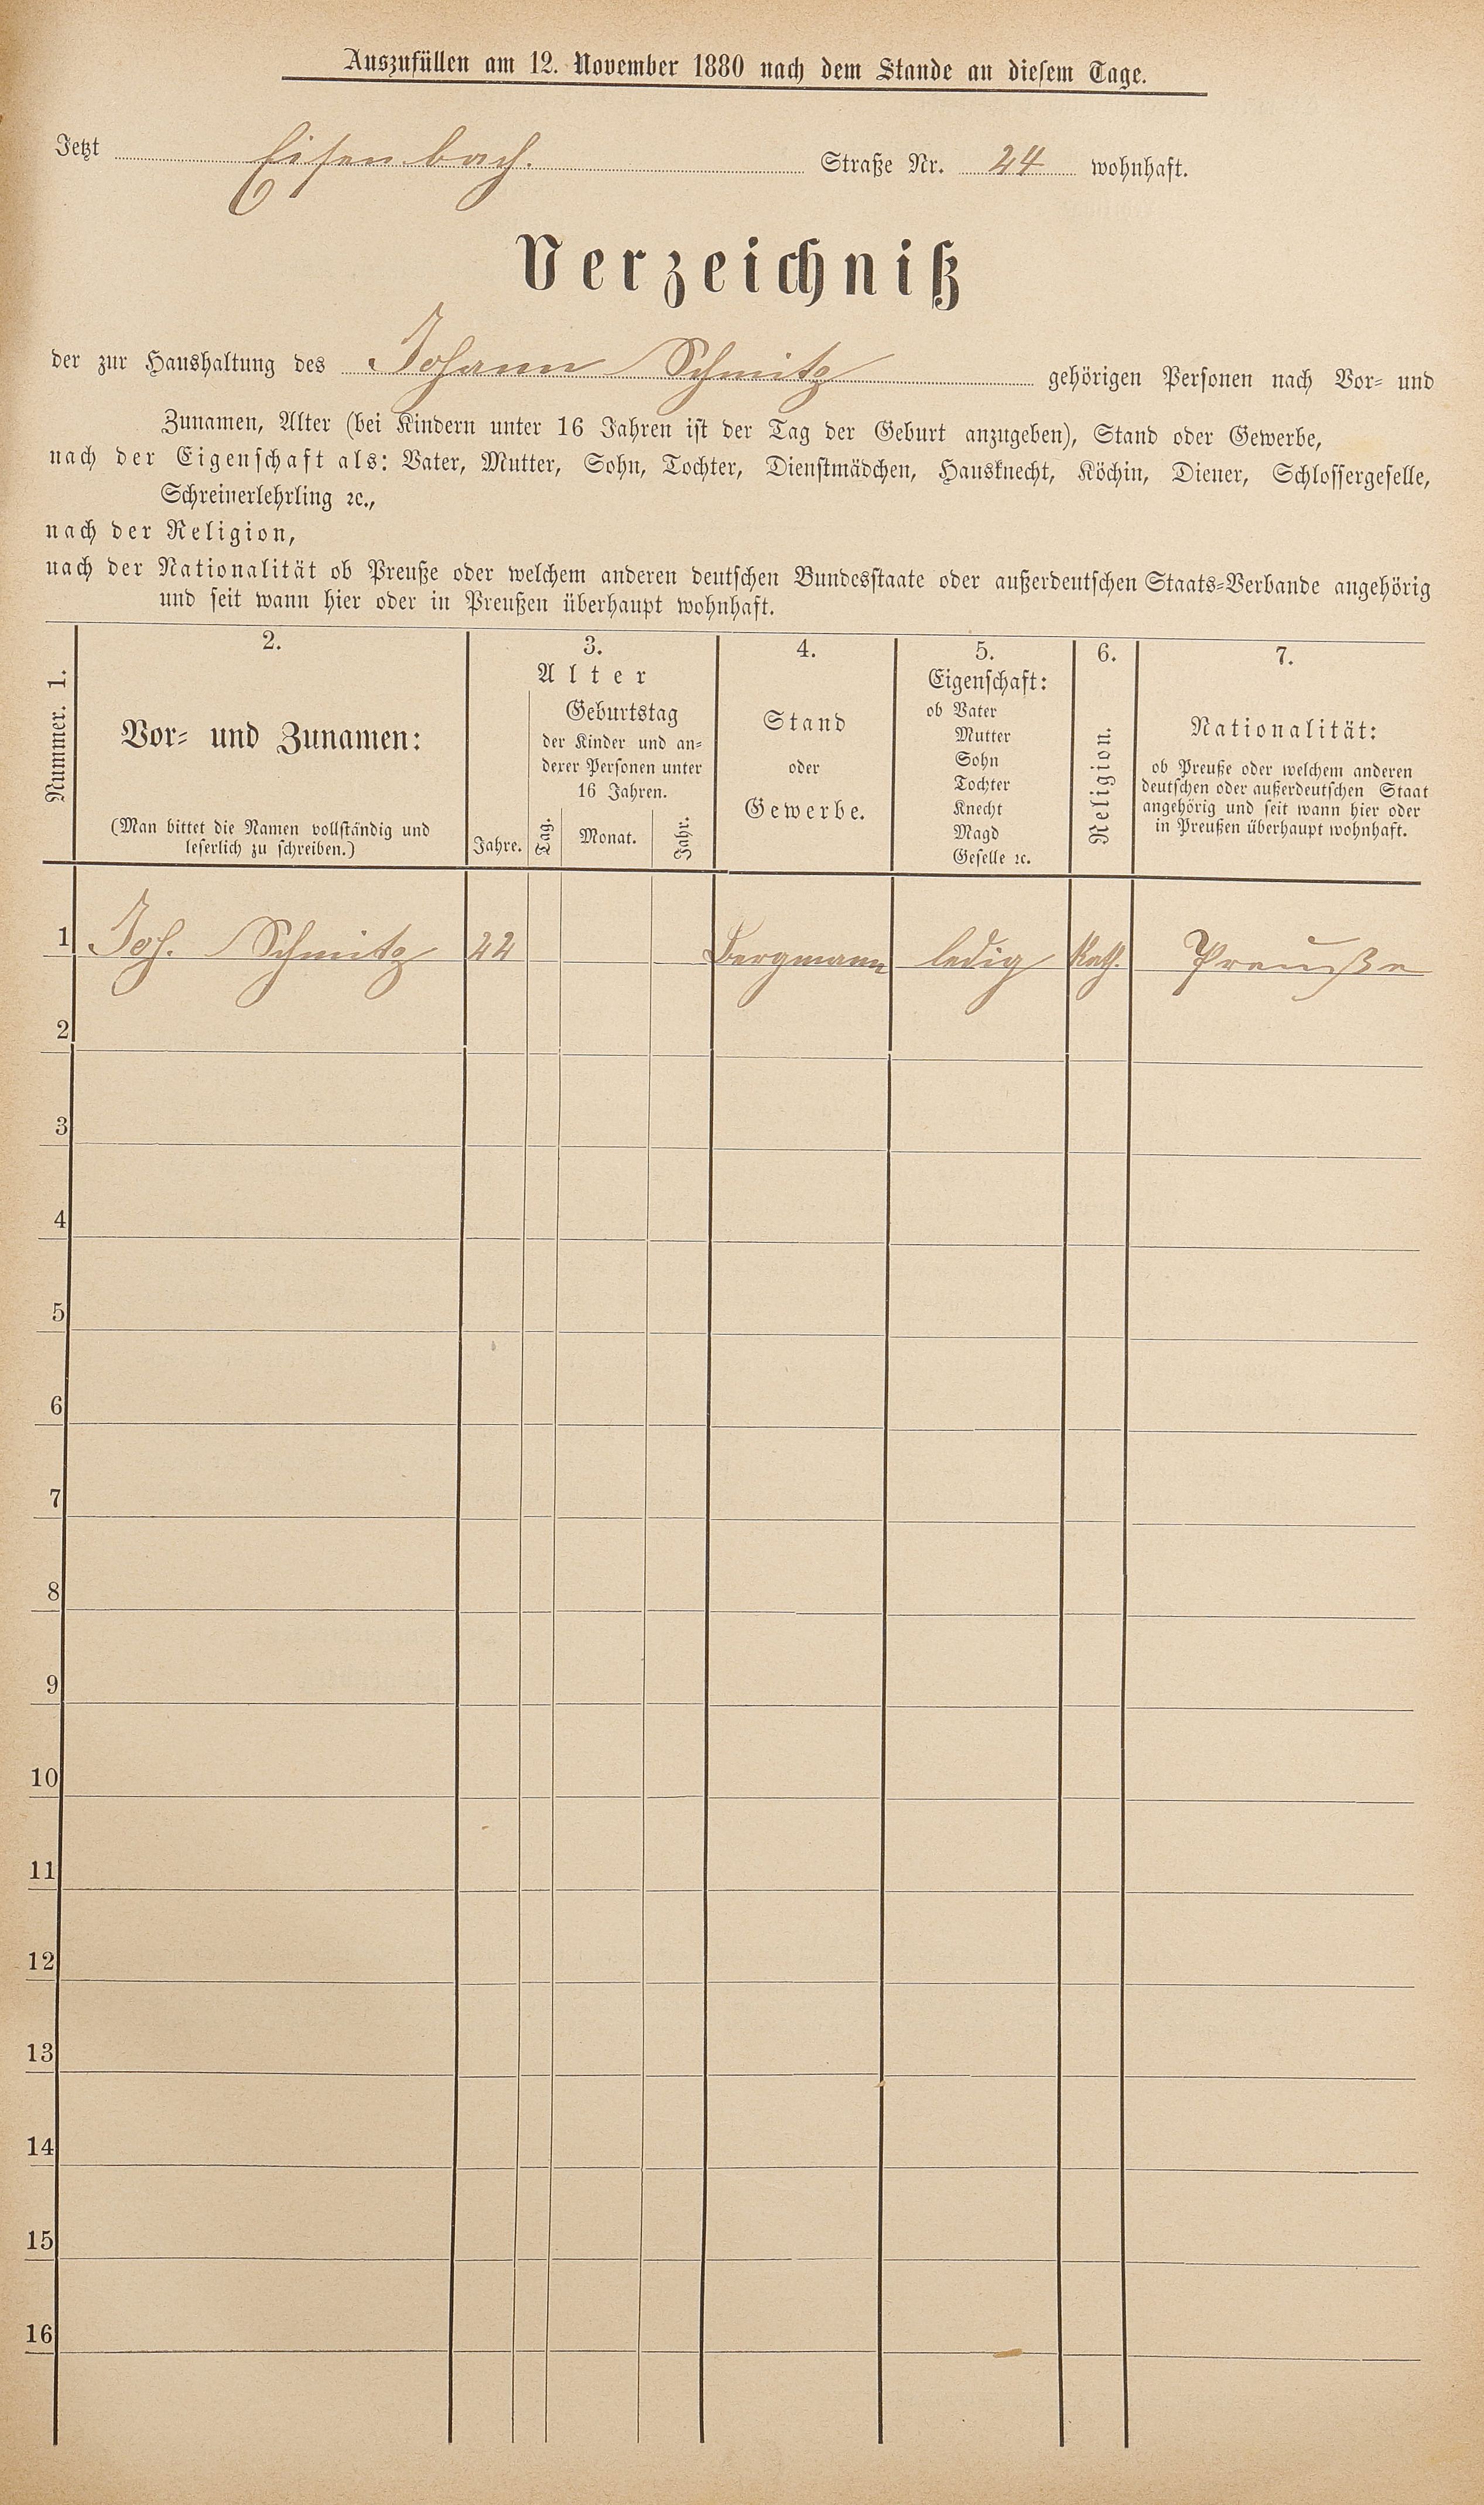 Auszufüllen am 12. November 1880 nach dem Stande an diesem Tage.
Jetzt Eisenbach. Straße Nr. 24 wohnhaft.
Verzeichniß
der zur Haushaltung des Johann Schmitz gehörigen Personen nach Vor- und
Zunamen, Alter (bei Kindern unter 16 Jahren ist der Tag der Geburt anzugeben), Stand oder Gewerbe,
nach der Eigenschaft als: Vater, Mutter, Sohn, Tochter, Dienstmädchen, Hausknecht, Köchin, Diener, Schlossergeselle,
Schreinerlehrling ꝛc.,
nach der Religion,
nach der Nationalität ob Preuße oder welchem anderen deutschen Bundesstaate oder außerdeutschen Staats-Verbande angehörig
und seit wann hier oder in Preußen überhaupt wohnhaft.
Nummer. 1.
2.
Vor- und Zunamen:
(Man bittet die Namen vollständig und
leserlich zu schreiben.)
3.
Alter
Jahre.
Geburtstag
der Kinder und an-
derer Personen unter
16 Jahren.
Tag.
Monat.
Jahr.
4.
Stand
oder
Gewerbe.
5.
Eigenschaft:
ob Vater
Mutter
Sohn
Tochter
Knecht
Magd
Geselle ꝛc.
6.
Religion.
7.
Nationalität:
ob Preuße oder welchem anderen
deutschen oder außerdeutschen Staat
angehörig und seit wann hier oder
in Preußen überhaupt wohnhaft.
1 Joh. Schmitz 22 Bergmann ledig Kath. Preuße
2
3
4
5
6
7
8
9
10
11
12
13
14
15
16